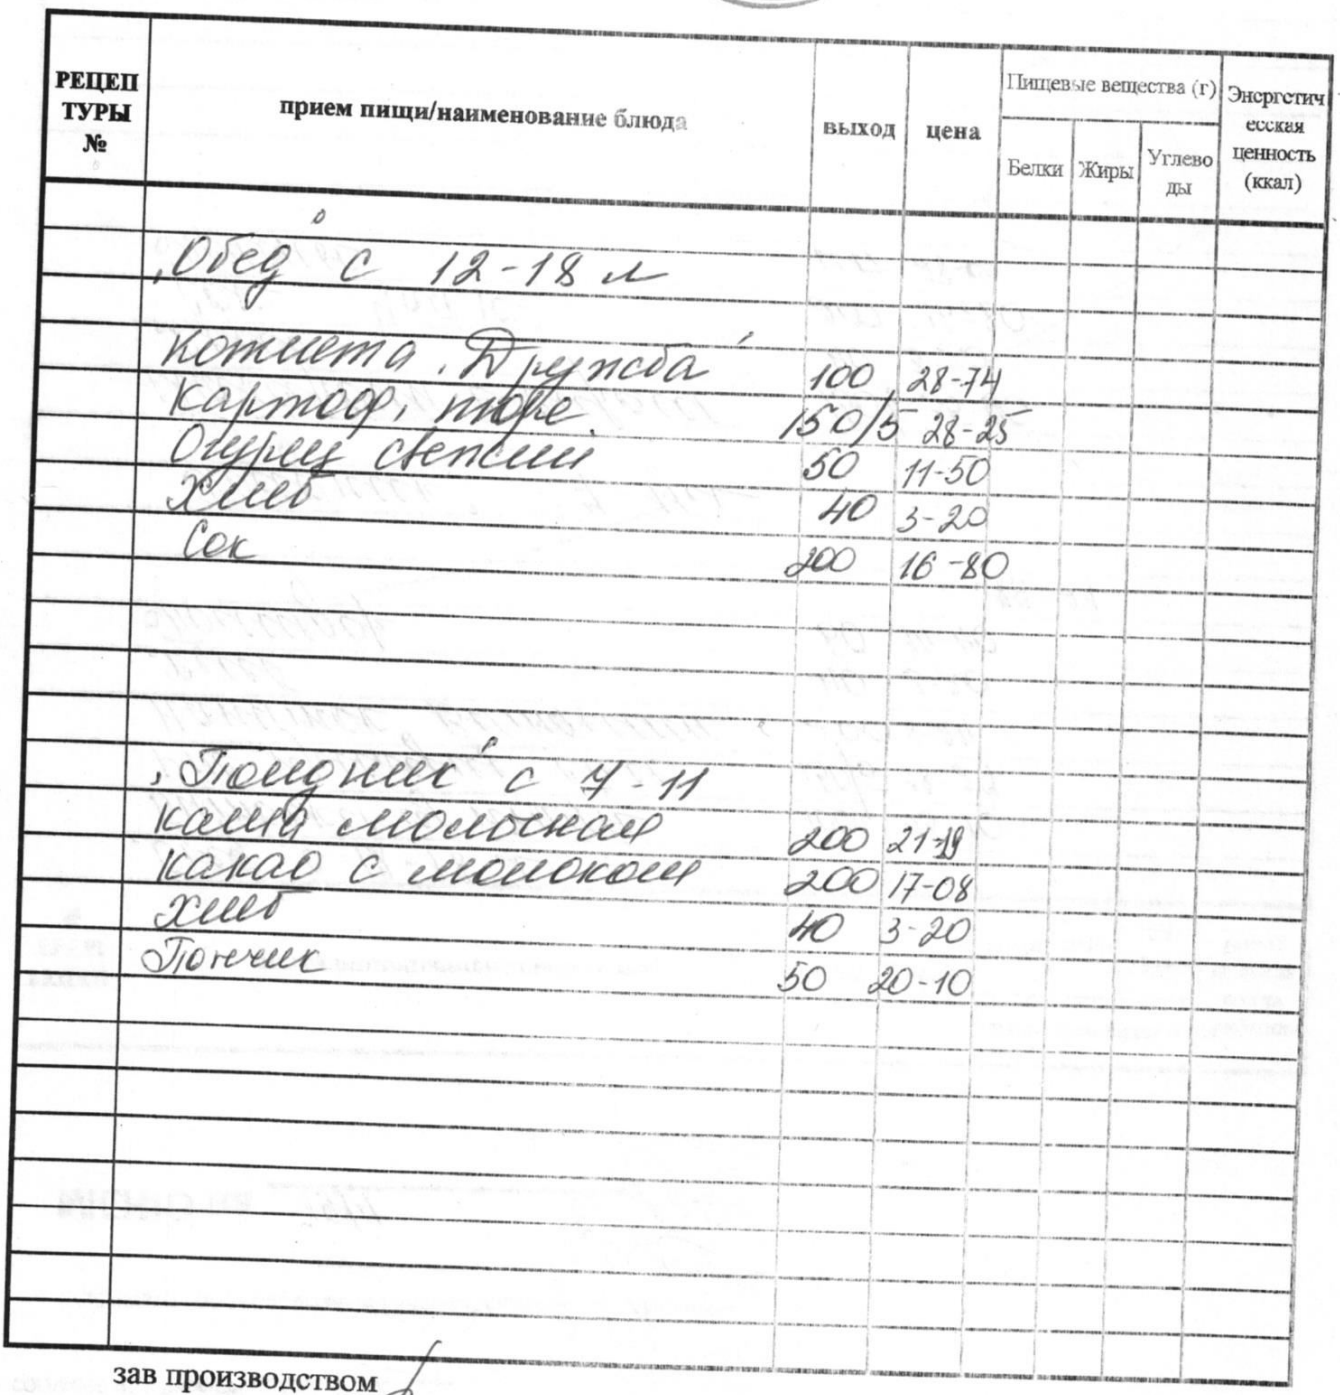 РЕЦЕП
ТУРЫ
№
прием пищи/наименование блюда
выход
цена
Пищевые вещества (г)
Белки
Жиры
Углево
ды
Энергетич
есская
ценность
(ккал)
"Обед" с 12-18 л
котлета "Дружба" 100 28-74
картоф. пюре. 150/5 28-25
Огурец свежий 50 11-50
Хлеб 40 3-20
Сок 200 16-80
"Полдник" с 7-11
каша молочная 200 21-19
какао с молоком 200 17-08
хлеб 40 3-20
Пончик 50 20-10
зав производством